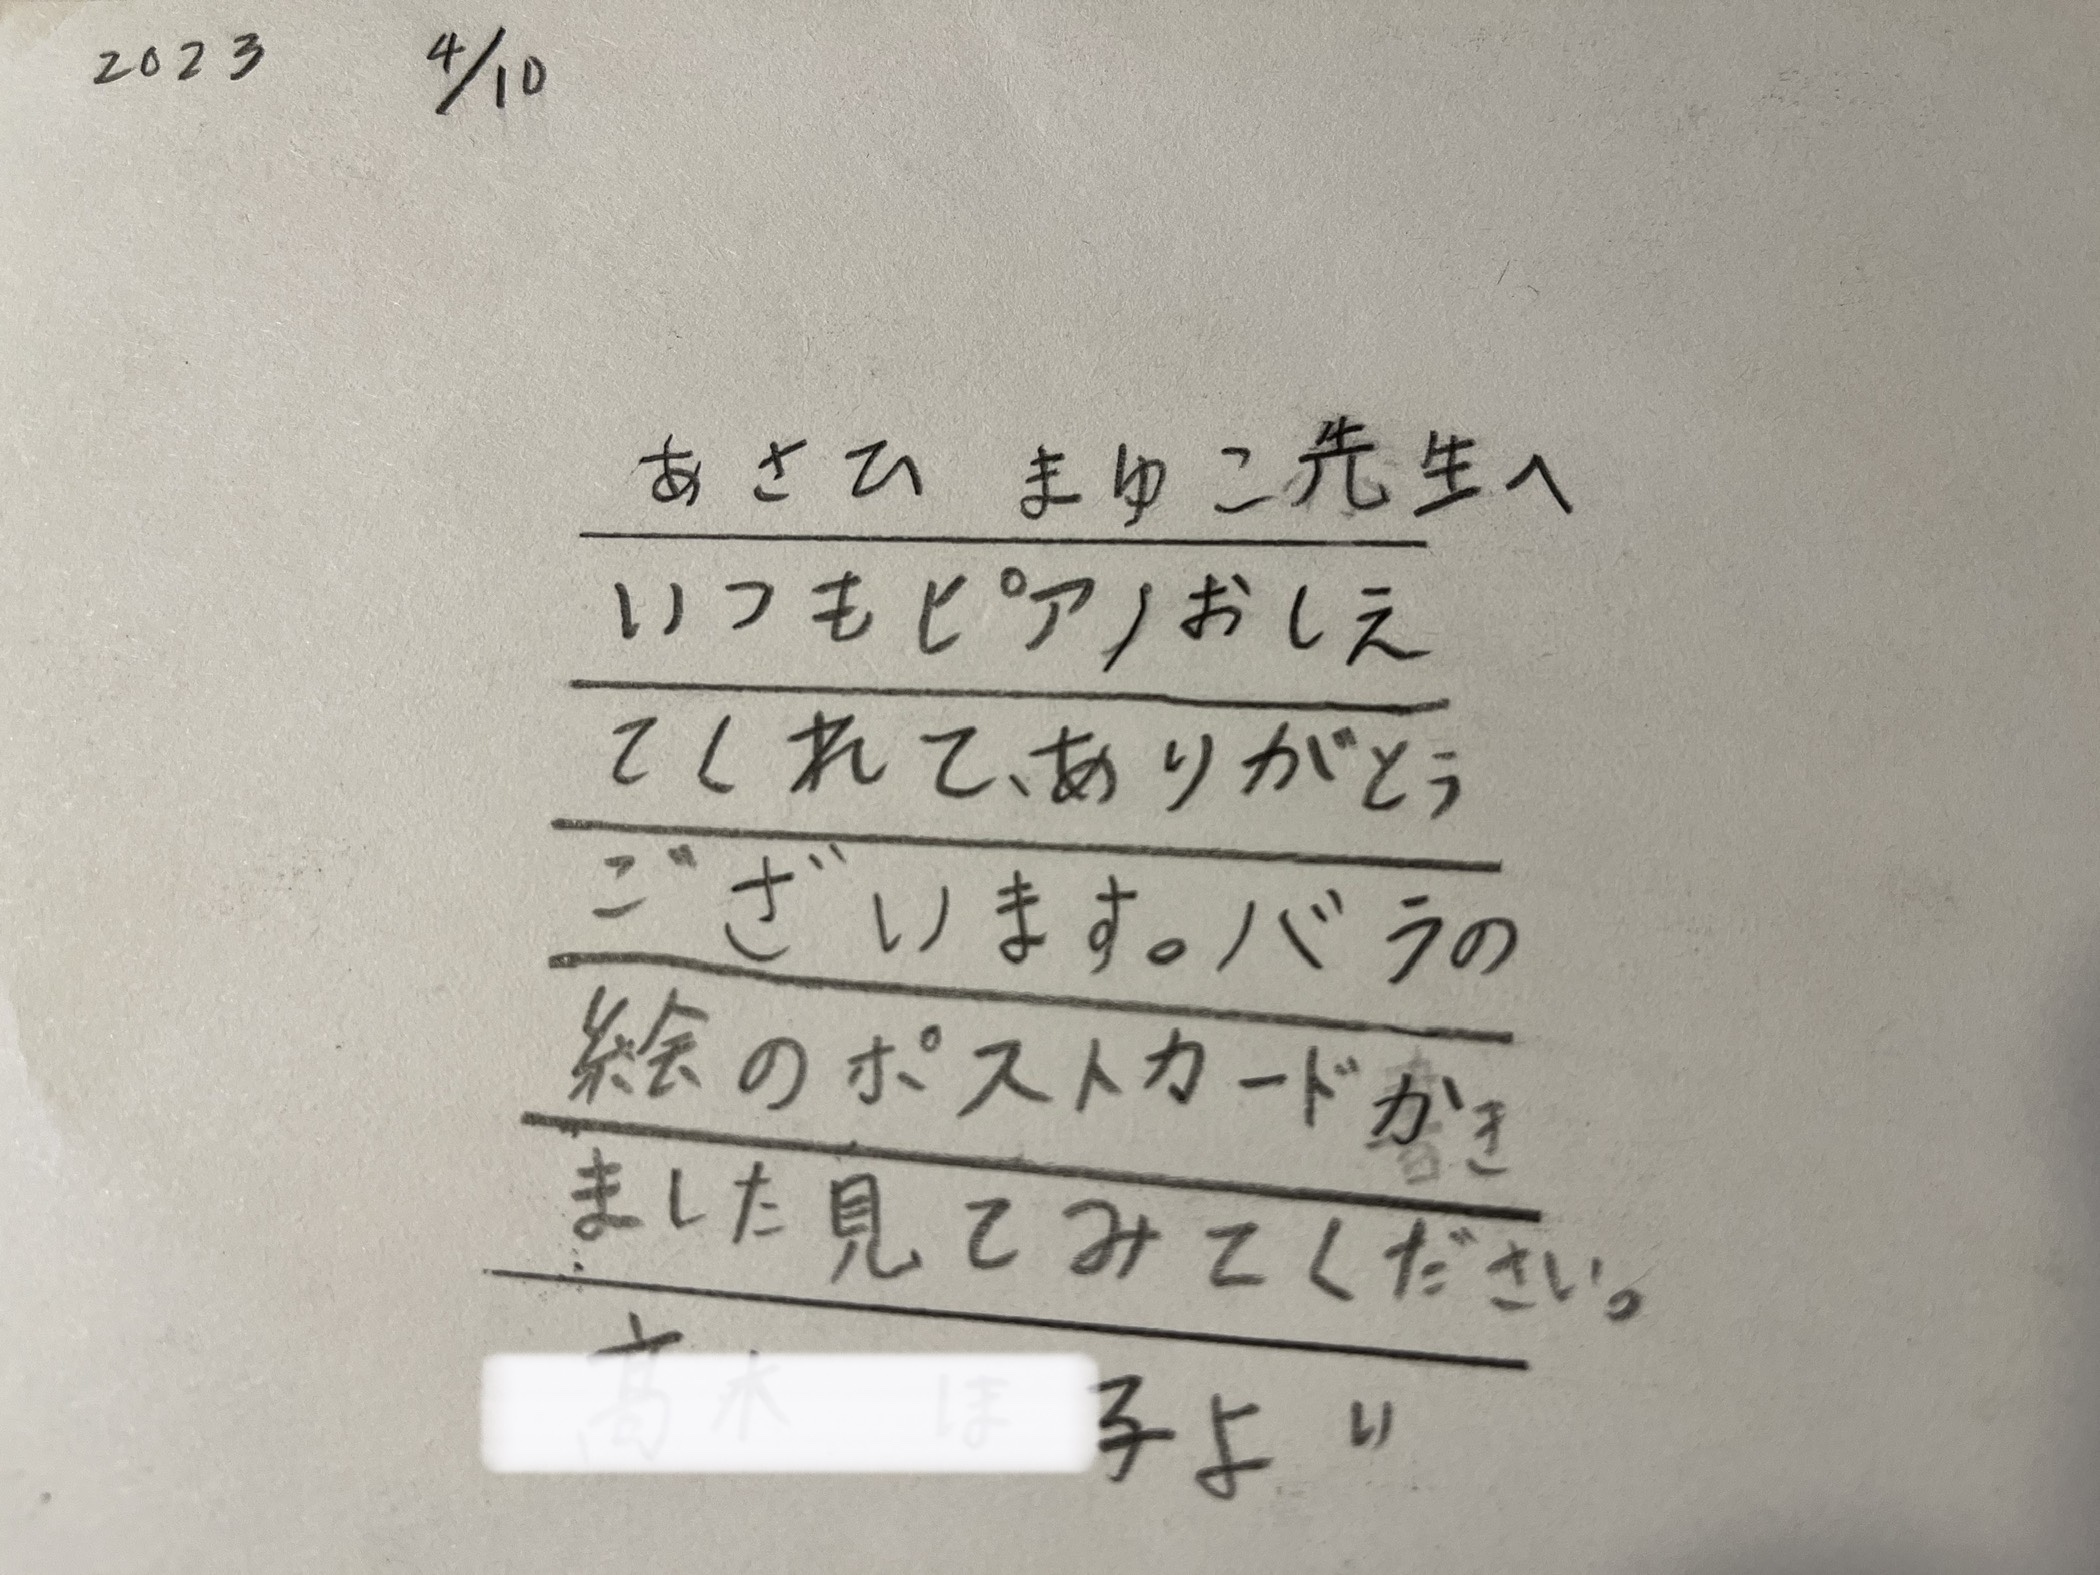 2023 4/10
あさひ まゆこ先生へ
いつもピアノおしえ
てくれて、ありがとう
ございます。バラの
絵のポストカードかき
ました見てみてください。
子より